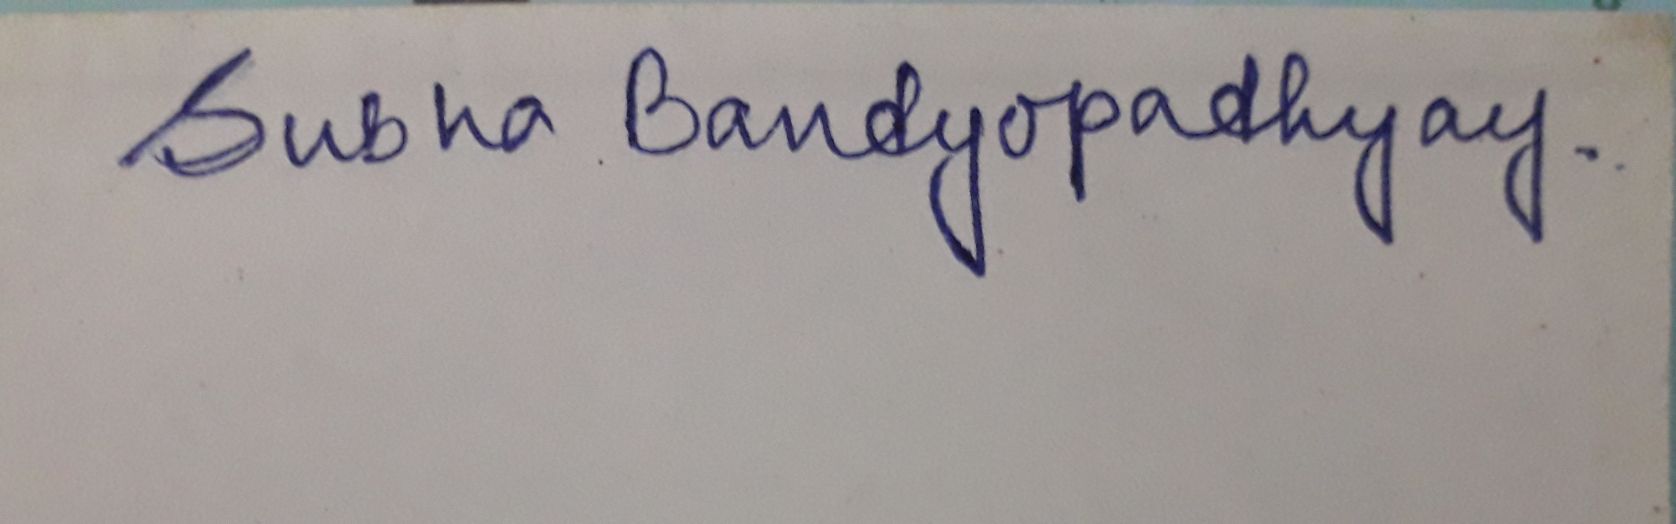 Subha Bandyopadhyay.